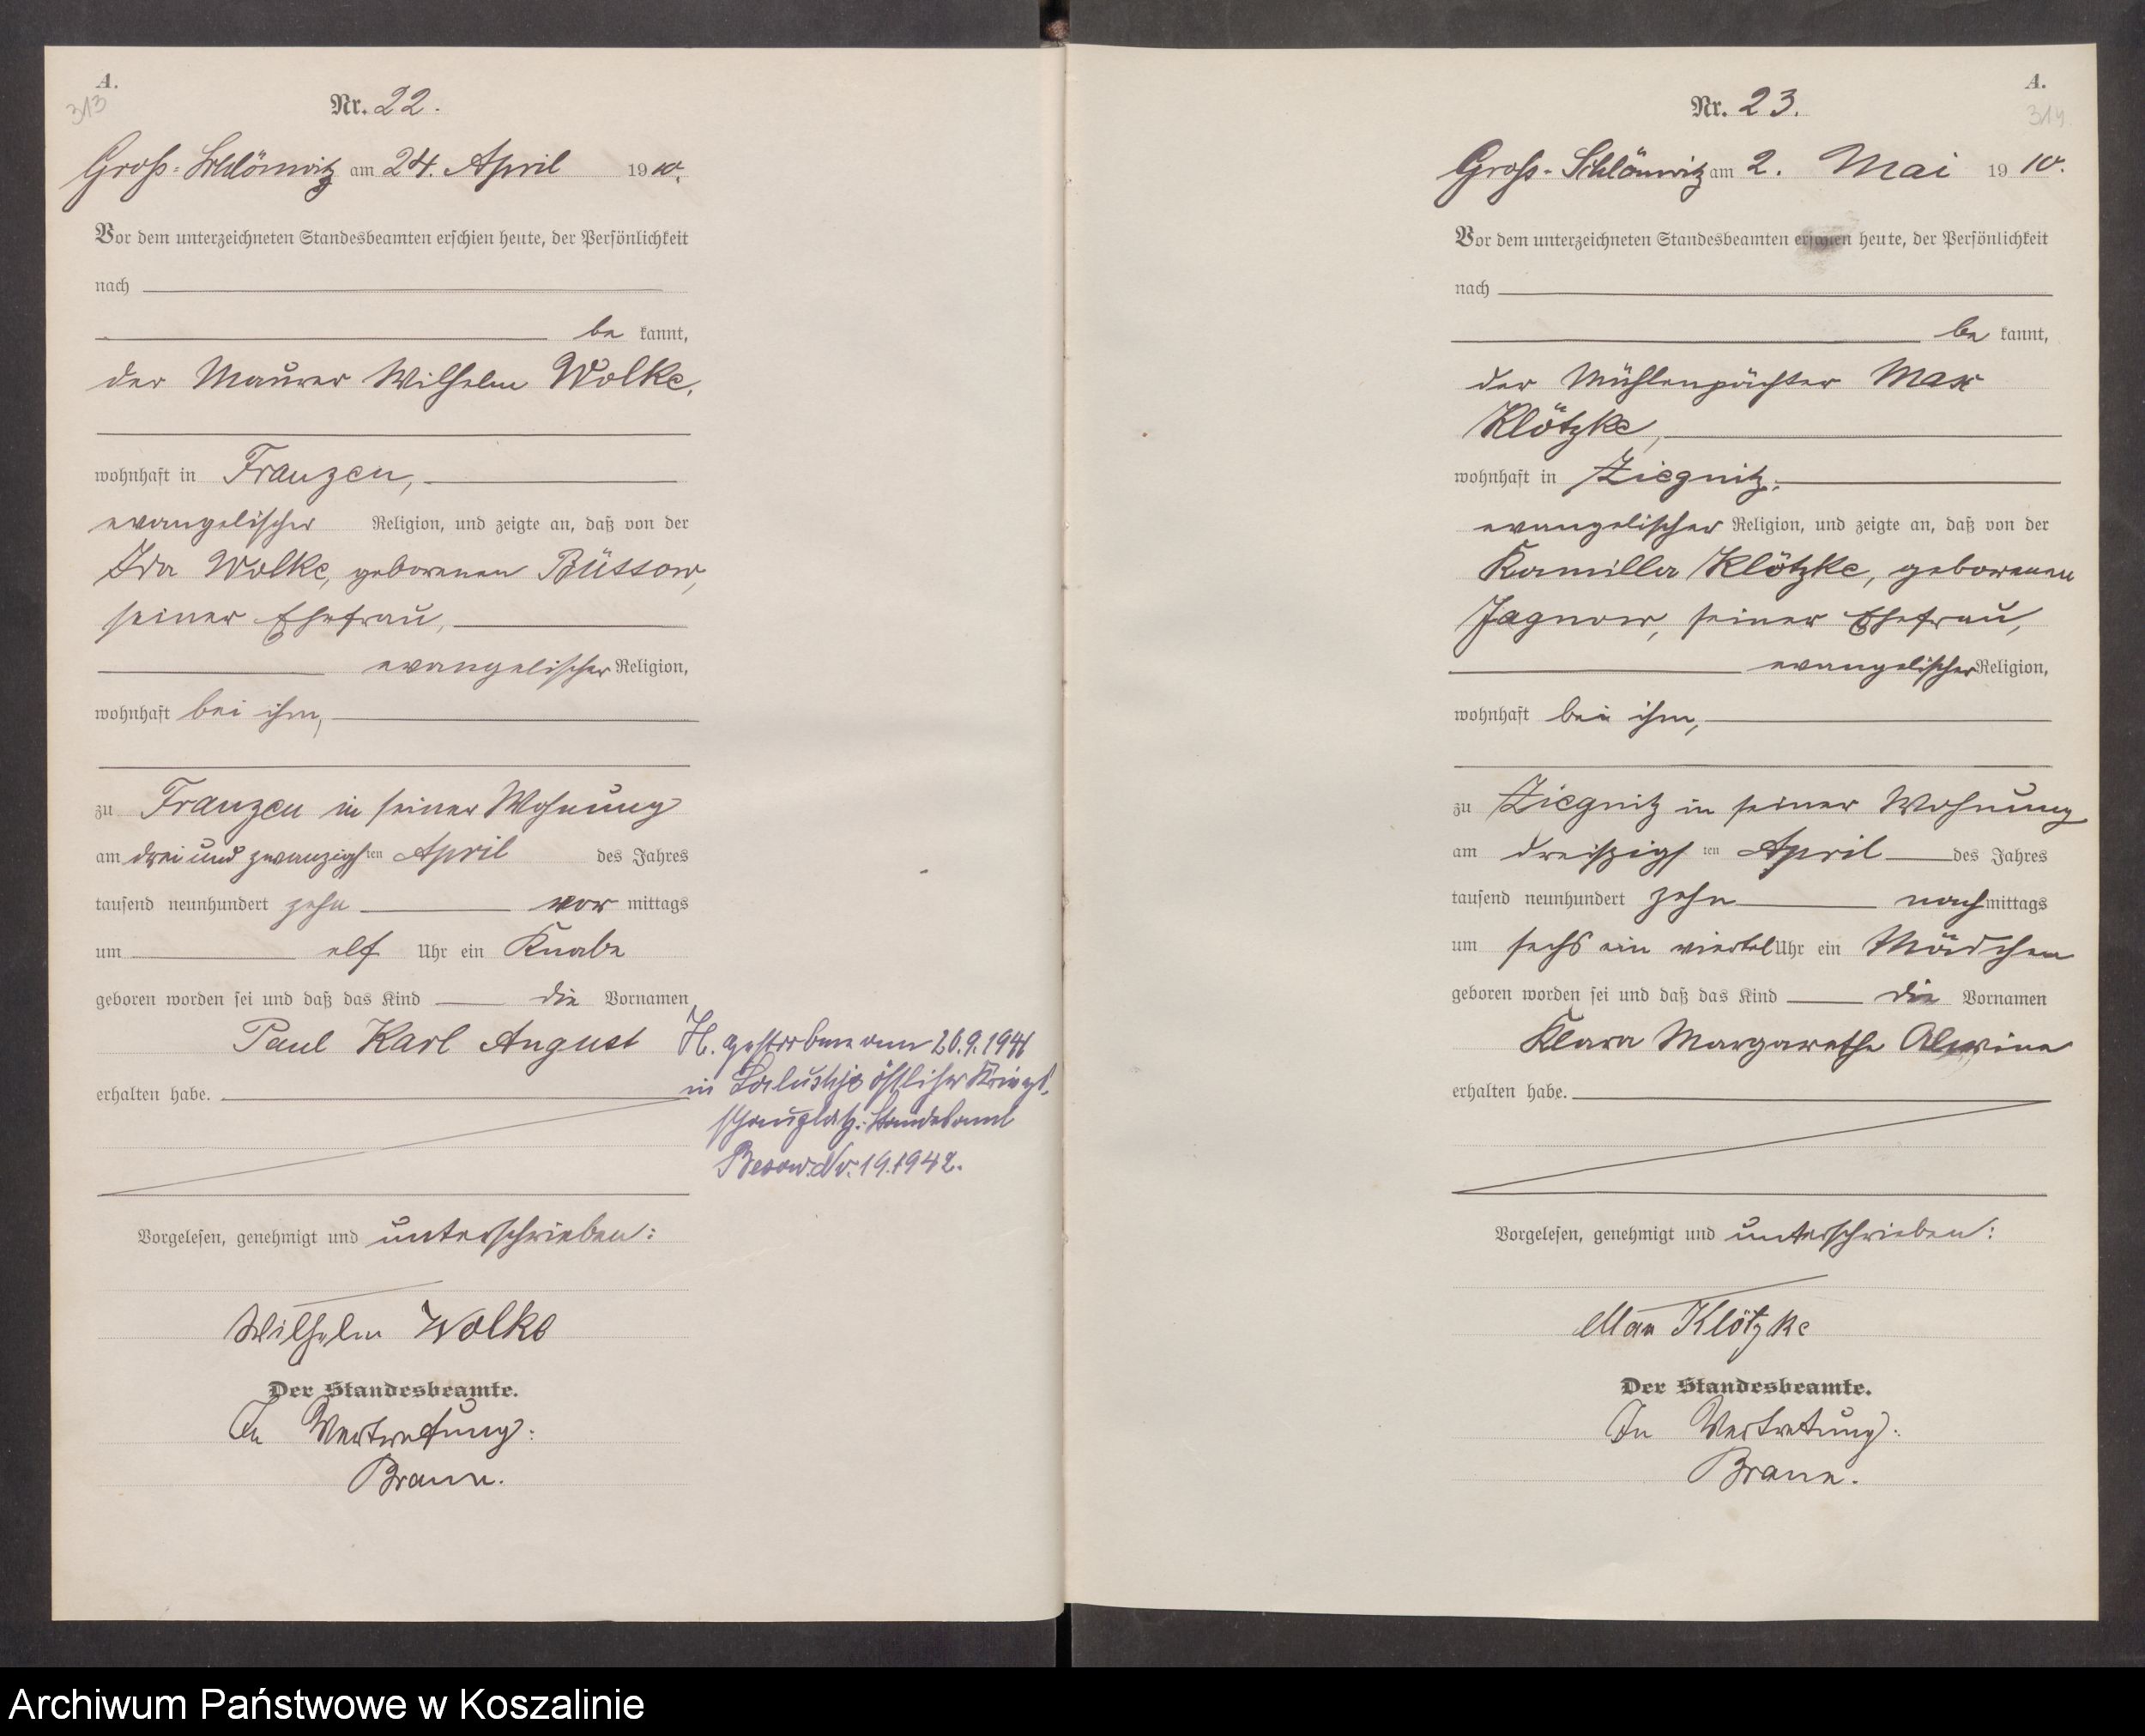 A.
313
Nr. 22.
Groß-Schlönwitz am 24. April 1910.
Vor dem unterzeichneten Standesbeamten erschien heute, der Persönlichkeit
nach
be kannt,
der Maurer Wilhelm Wolke,
wohnhaft in Franzen,
evangelischer Religion, und zeigte an, daß von der
Ida Wolke, geborenen Büssow,
seiner Ehefrau,
evangelischer Religion,
wohnhaft bei ihm,
zu Franzen in seiner Wohnung
am drei und zwanzigsten April des Jahres
tausend neunhundert zehn vor mittags
um elf Uhr ein Knabe
geboren worden sei und daß das Kind die Vornamen
Paul Karl August
erhalten habe.
H. gestorben am 20.9.1941
in östlicher Kriegs-
schauplatz. Standesamt
Besow Nr. 19.1942.
Vorgelesen, genehmigt und unterschrieben:
Wilhelm Wolke
Der Standesbeamte.
In Vertretung:
Braun.
A.
314
Nr. 23.
Groß-Schlönwitz am 2. Mai 1910.
Vor dem unterzeichneten Standesbeamten erschien heute, der Persönlichkeit
nach
be kannt,
der Mühlenpächter Max
Klötzke,
wohnhaft in Ziegnitz,
evangelischer Religion, und zeigte an, daß von der
Kamilla Klötzke, geborenen
Jagnow, seiner Ehefrau,
evangelischer Religion,
wohnhaft bei ihm,
zu Ziegnitz in seiner Wohnung
am dreißigsten April des Jahres
tausend neunhundert zehn nachmittags
um sechs ein viertel Uhr ein Mädchen
geboren worden sei und daß das Kind die Vornamen
Klara Margarethe Alwine
erhalten habe.
Vorgelesen, genehmigt und unterschrieben:
Max Klötzke
Der Standesbeamte.
In Vertretung:
Braun.
Archiwum Państwowe w Koszalinie